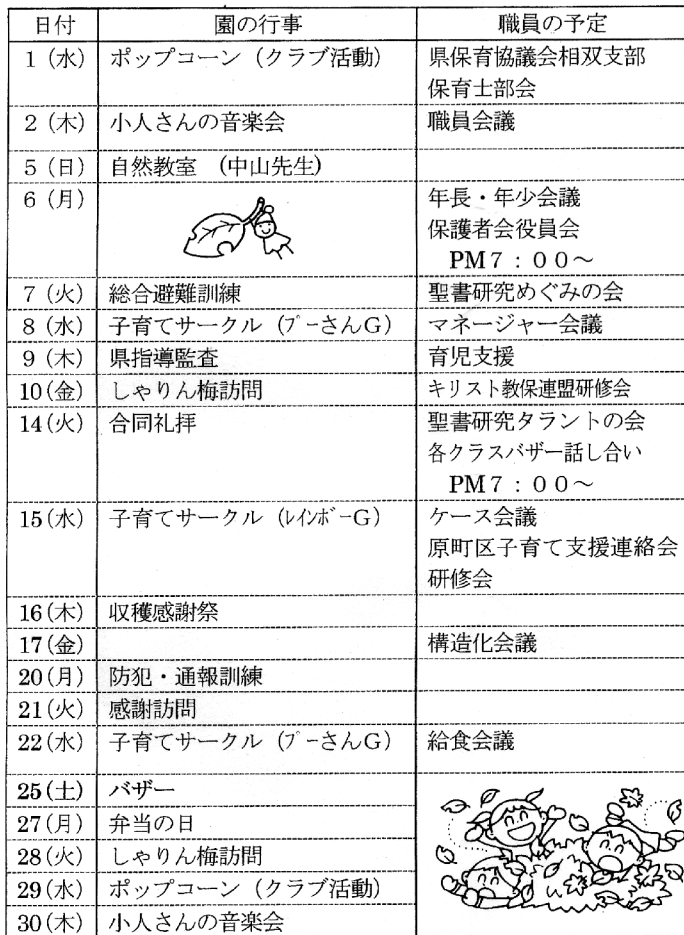 日付 園の行事 職員の予定
1（水） ポップコーン（クラブ活動） 県保育協議会相双支部
保育士部会
2（木） 小人さんの音楽会 職員会議
5（日） 自然教室 （中山先生）
6（月） 年長・年少会議
保護者会役員会
PM7：００～
7（火） 総合避難訓練 聖書研究めぐみの会
8（水） 子育てサークル（ﾌﾟｰさんG） マネージャー会議
9（木） 県指導監査 育児支援
10(金) しゃりん梅訪問 キリスト教保連盟研修会
14(火) 合同礼拝 聖書研究タラントの会
各クラスバザー話し合い
PM7：００～
15(水) 子育てサークル（ﾚｲﾝﾎﾞｰG） ケース会議
原町区子育て支援連絡会
研修会
16(木) 収穫感謝祭
17(金) 構造化会議
20(月) 防犯・通報訓練
21(火) 感謝訪問
22(水) 子育てサークル（ﾌﾟｰさんG） 給食会議
25(土) バザー
27(月) 弁当の日
28(火) しゃりん梅訪問
29(水) ポップコーン（クラブ活動）
30(木) 小人さんの音楽会